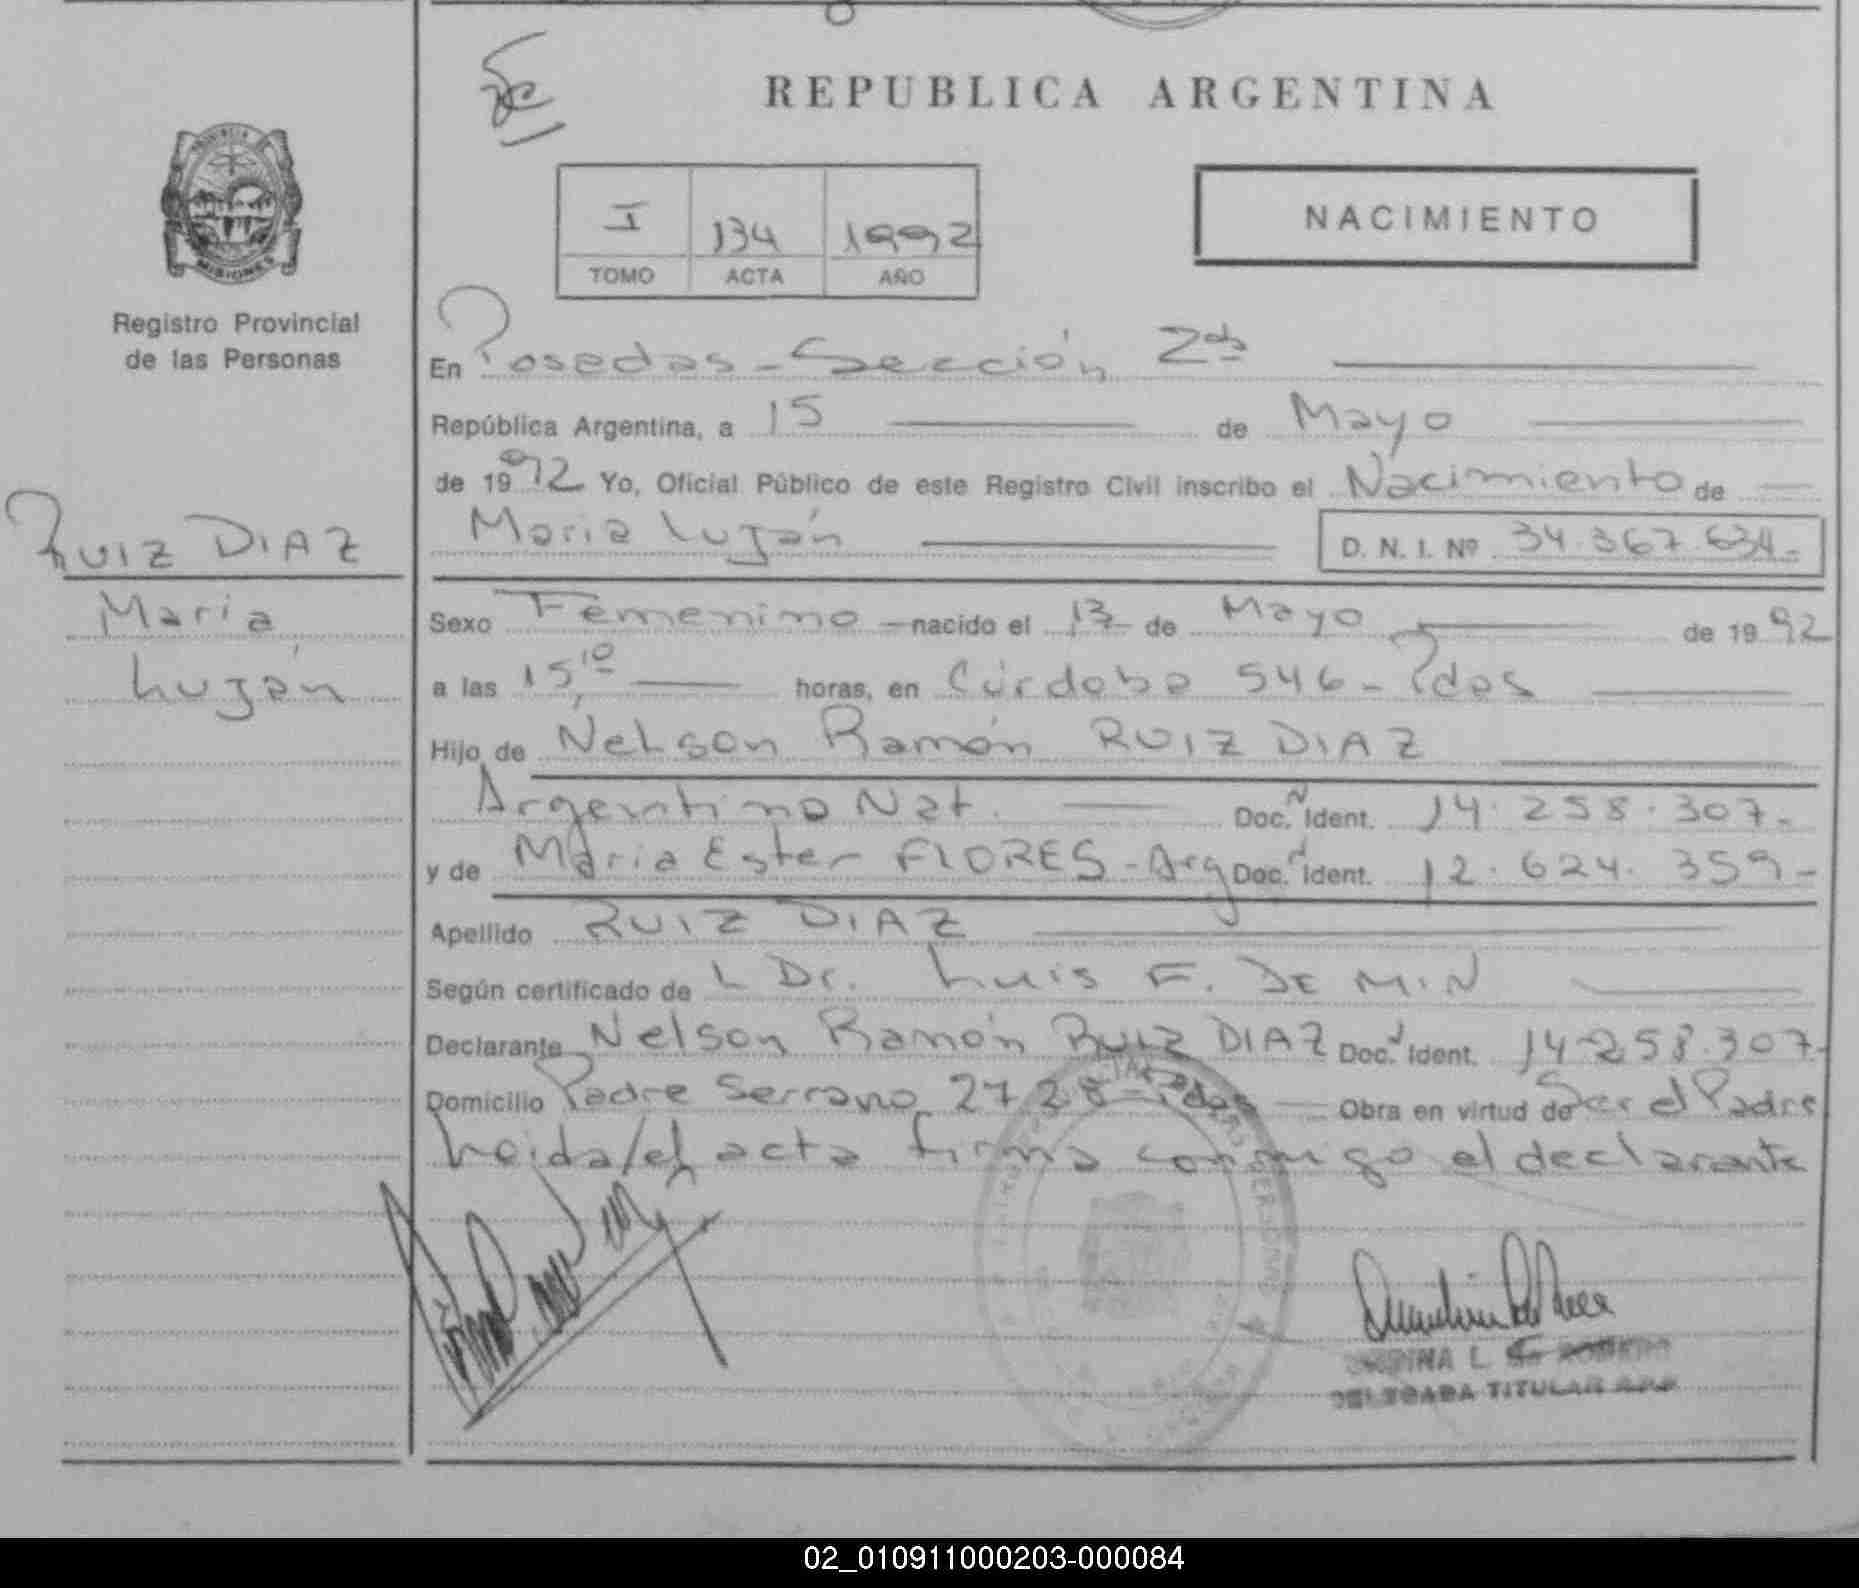 REPUBLICA ARGENTINA
PROVINCIA
MISIONES
Registro Provincial
de las Personas
I 134 1992
TOMO ACTA AÑO
NACIMIENTO
En Posadas - Sección 2da
República Argentina, a 15 de Mayo
de 1992 Yo, Oficial Público de este Registro Civil inscribo el Nacimiento de
María Luján D. N. I. Nº 34.367.634-
RUIZ DIAZ
María
Luján
Sexo Femenino - nacido el 13 de Mayo de 1992
a las 15,10 horas, en Córdoba 546 - Pdas
Hijo de Nelson Ramón RUIZ DIAZ
Argentino Nat. Doc. Ident. 14.258.307-
y de María Ester FLORES - Arg Doc. Ident. 12.624.359-
Apellido RUIZ DIAZ
Según certificado de L Dr. Luis F. DE MIN
Declarante Nelson Ramón RUIZ DIAZ Doc. Ident. 14.258.307-
Domicilio Padre Serrano 2728 - Pdas Obra en virtud de Ser el Padre
Leida el acta firma conmigo el declarante
L. de ROMERO
DELEGADA TITULAR
02_010911000203-000084